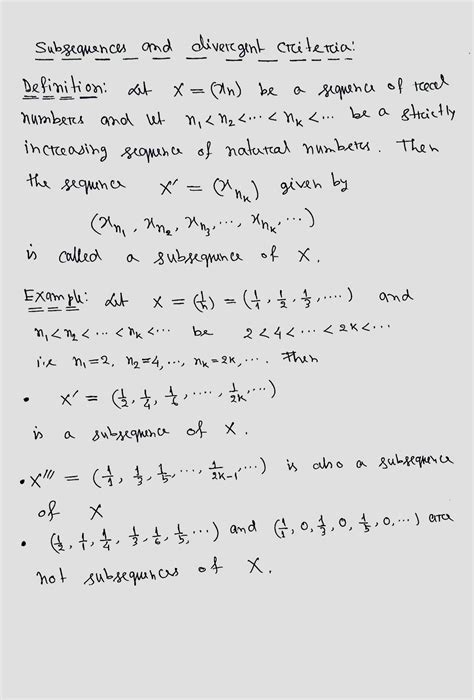 Subsequences and divergent criteria:
Definition: Let X = (xn) be a sequence of real
numbers and let n₁ < n₂ < ··· < nₖ < ··· be a strictly
increasing sequence of natural numbers. Then
the sequence X' = (x_{nₖ}) given by
(x_{n₁}, x_{n₂}, x_{n₃}, ···, x_{nₖ}, ···)
is called a subsequence of X.
Example: Let X = (1/n) = (1/1, 1/2, 1/3, ····) and
n₁ < n₂ < ··· < nₖ < ··· be 2 < 4 < ··· < 2k < ···
i.e n₁ = 2, n₂ = 4, ···, nₖ = 2k, ···. Then
• X' = (1/2, 1/4, 1/6, ····, 1/2k, ···)
is a subsequence of X.
• X''' = (1/1, 1/3, 1/5, ···, 1/2k-1, ···) is also a subsequence
of X
• (1/2, 1/1, 1/4, 1/3, 1/6, 1/5, ···) and (1/1, 0, 1/3, 0, 1/5, 0, ···) are
not subsequences of X.